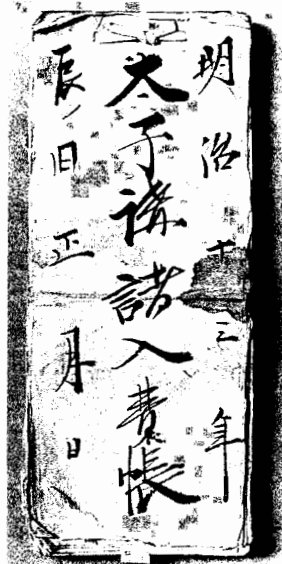 明治十三年
太子講諸入費帳
辰ノ旧正月日